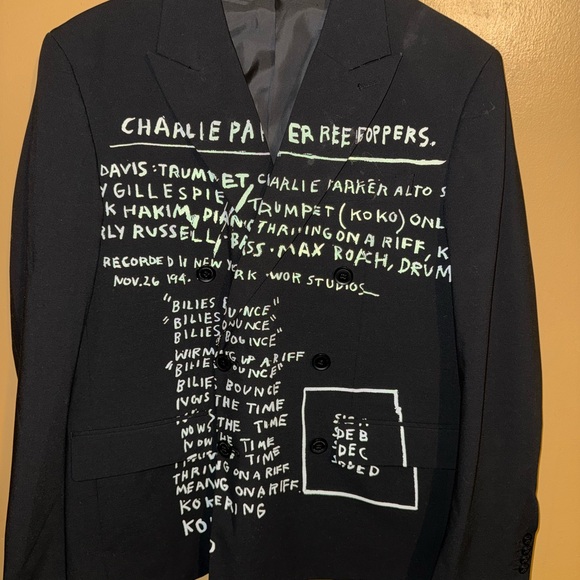 CHARLIE PARKER REEBOPPERS.
DAVIS: TRUMPET, CHARLIE PARKER ALTO S
Y GILLESPIE / TRUMPET (KOKO) ONL
K HAKIM, PIANO THRIIING ON A RIFF, K
RLY RUSSELL, BASS · MAX ROACH, DRUM
RECORDED II NEW YORK WOR STUDIOS
NOV. 26 194.
"BILIES BOUNCE"
"BILIES BOUNCE"
BILIES BOUNCE
WIRMING UP A RIFF
"BILIES BOUNCE"
BILIES BOUNCE
NOWS THE TIME
NOWS THE TIME
NOW THE TIME
TIME
THRIVING ON A RIFF
MEANING ON A RIFF
KOKERING
KO
DEB
DEC